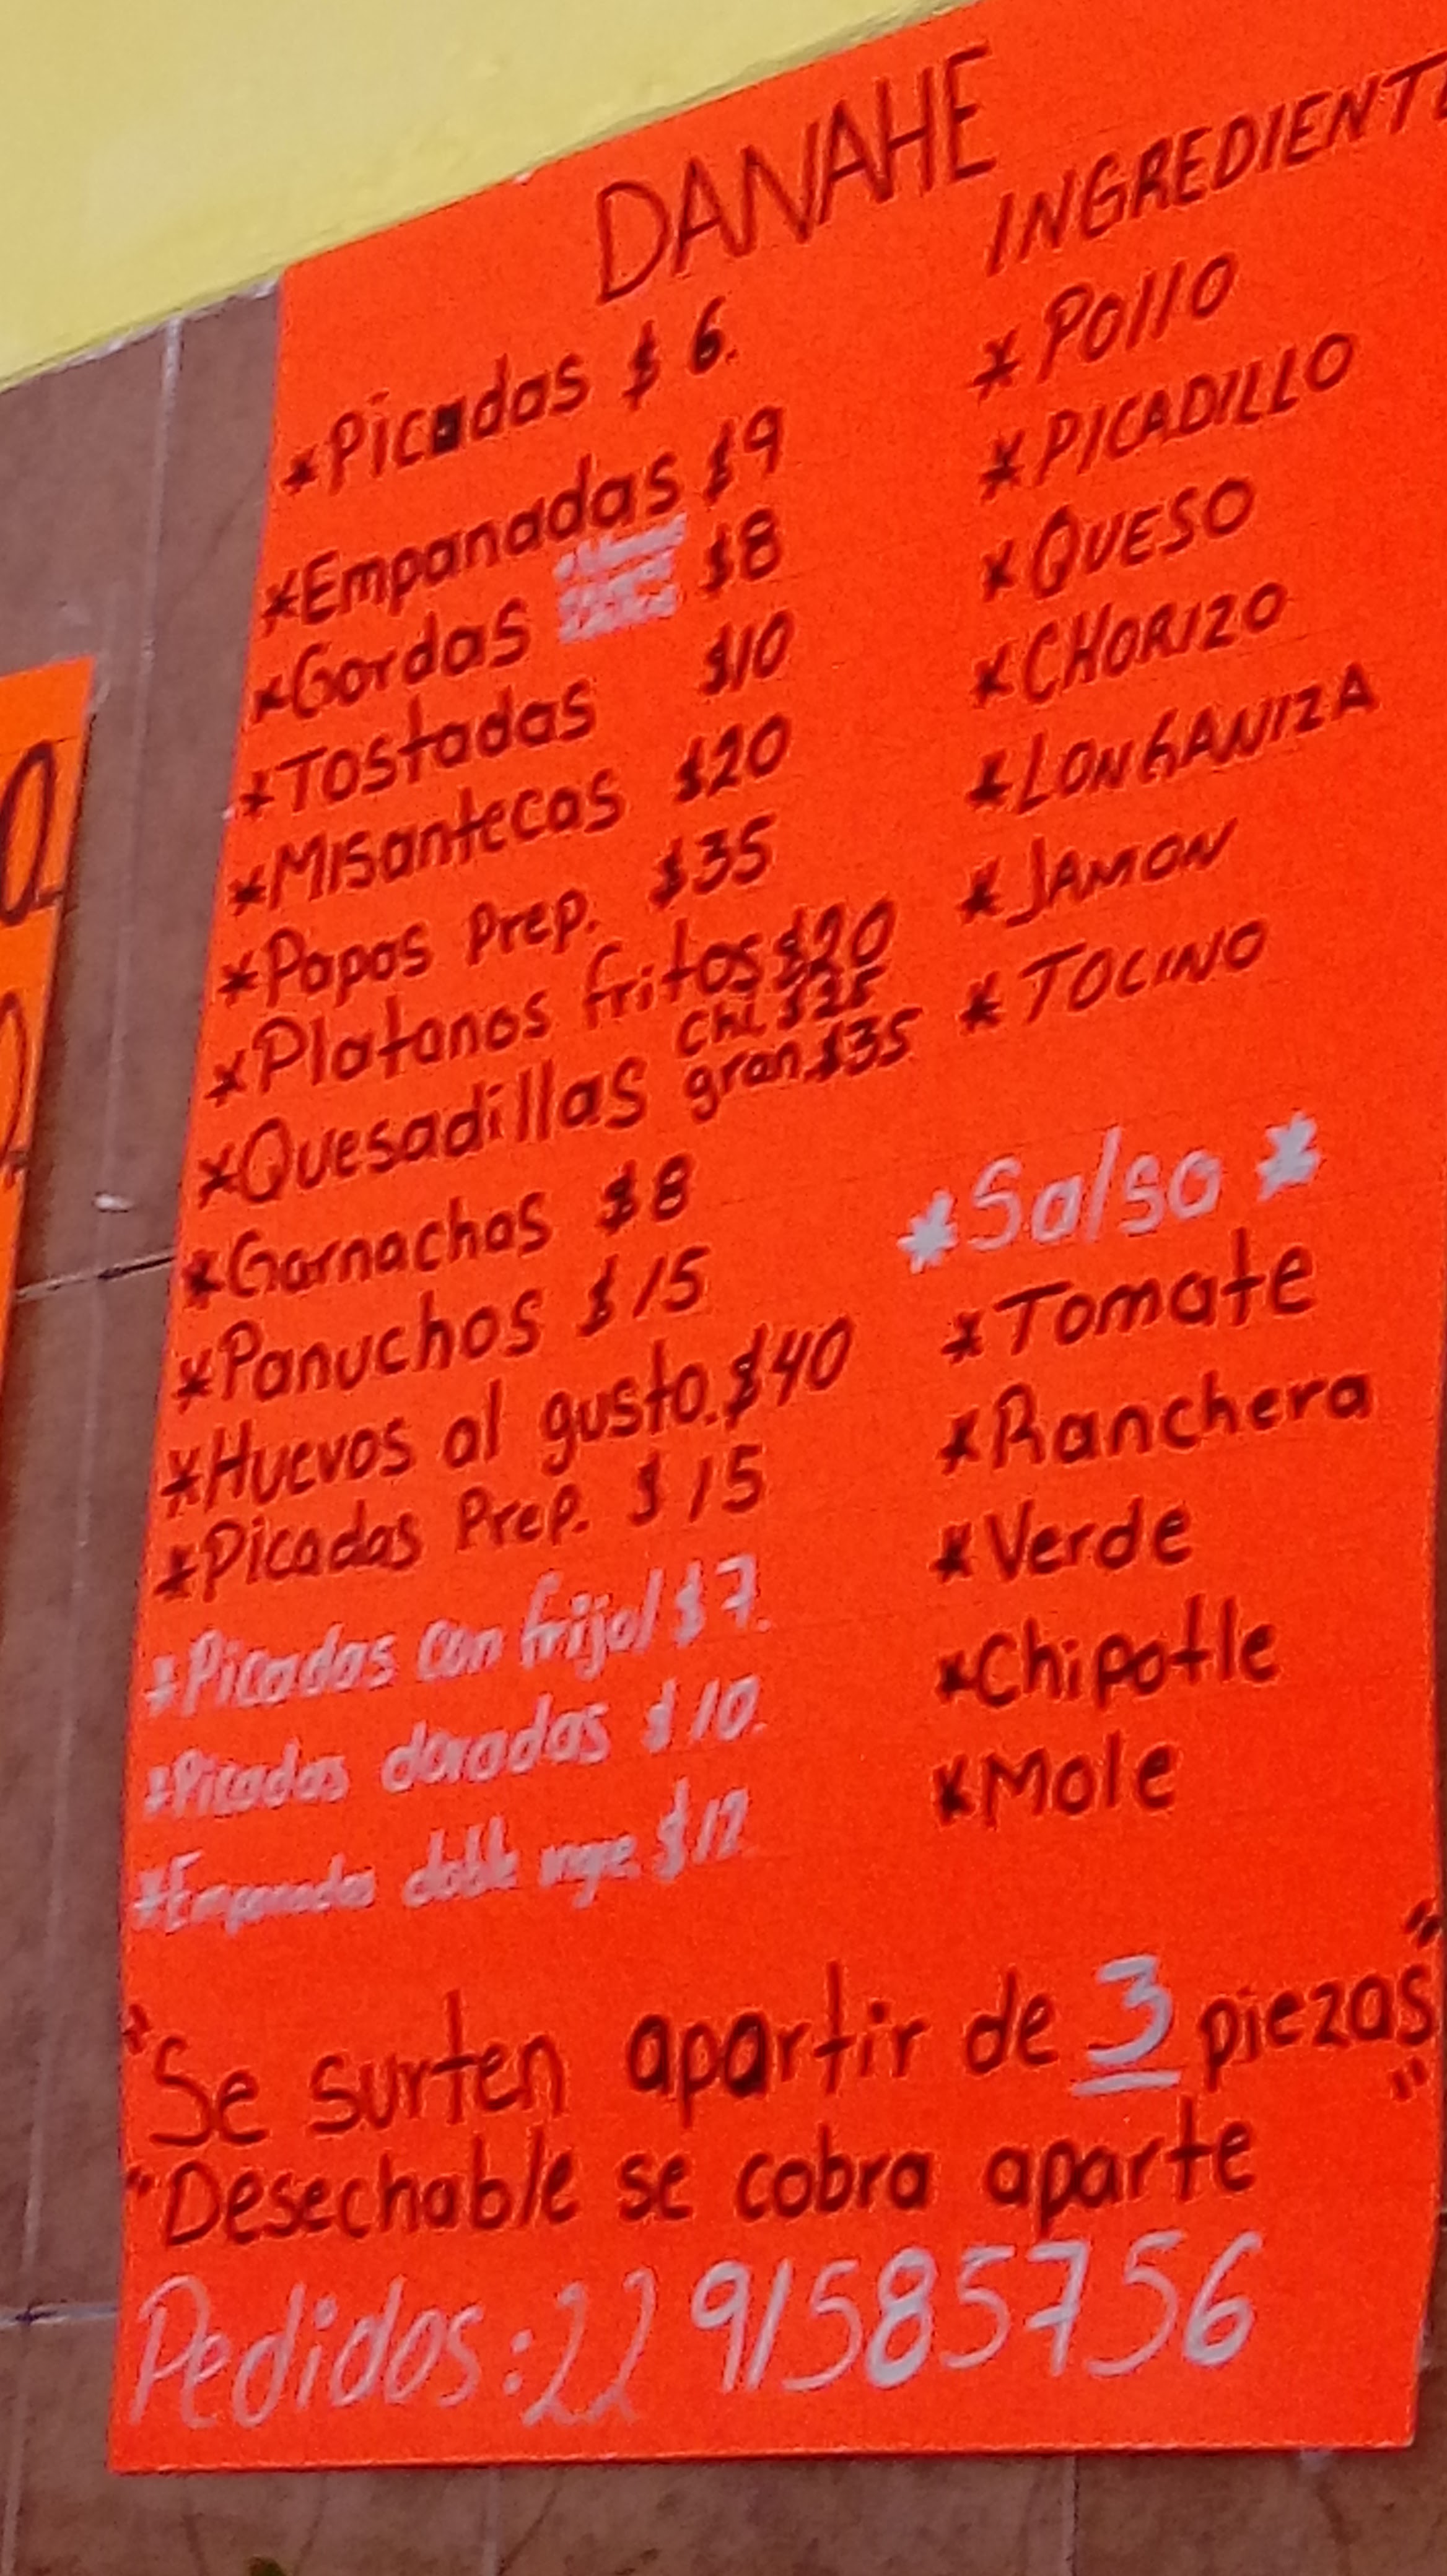 DANAHE
*Picadas $6.
*Empanadas $9
*Gordas $8
*Tostadas $10
*Misantecas $20
*Papas Prep. $35
*Platanos fritos $20
*Quesadillas chi. $25
gran. $35
*Garnachas $8
*Panuchos $15
*Huevos al gusto. $40
*Picadas Prep. $15
*Picadas con frijol $7.
*Picadas doradas $10.
*Empanadas doble ingre.
INGREDIENTE
*Pollo
*PICADILLO
*QUESO
*CHORIZO
*LONGANIZA
*JAMON
*TOCINO
*Salsa*
*Tomate
*Ranchera
*Verde
*Chipotle
*Mole
"Se surten apartir de 3 piezas"
"Desechable se cobra aparte"
Pedidos: 22 91585756